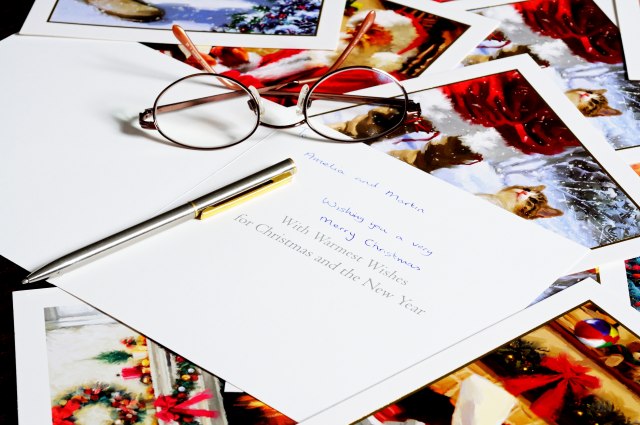 Amelia and Martin
Wishing you a very
Merry Christmas
With Warmest Wishes
for Christmas and the New Year